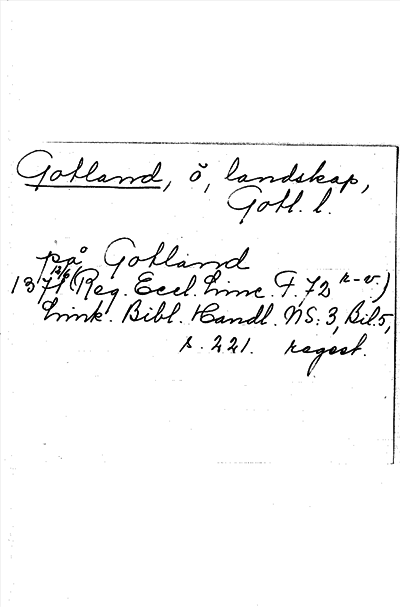 Gotland, ö, landskap,
Gotl. l.
på Gotland
1371 12/6 (Reg. Eccl. Linc. F, 72 r-v.)
Link. Bibl. Handl. NS: 3, Bil. 5,
s. 221. regest.